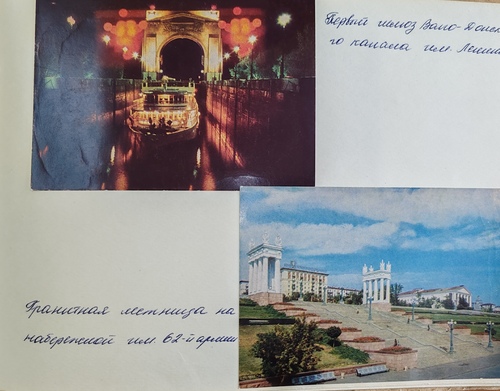 Первый шлюз Волго-Донск
го канала им. Ленин
Гранитная лестница на
набережной им. 62-й армии